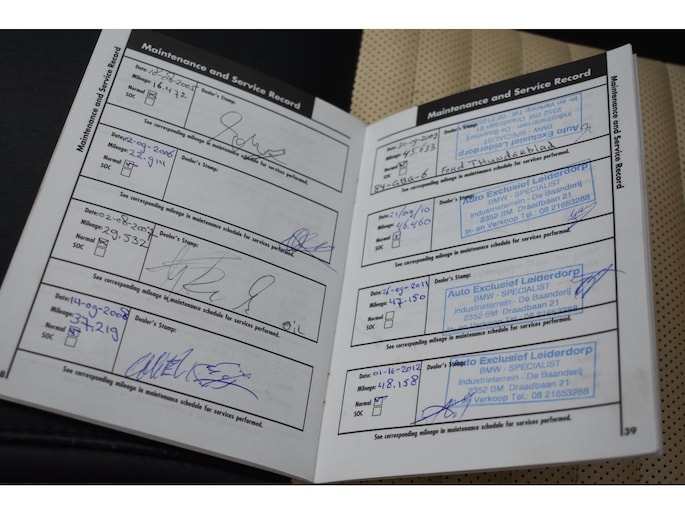 Maintenance and Service Record
Maintenance and Service Record
Date: 18-08-2005
Mileage: 16.472
Normal
SOC
Dealer's Stamp:
See corresponding mileage in maintenance schedule for services performed.
Date: 02-09-2006
Mileage: 22.914
Normal
SOC
See corresponding mileage in maintenance schedule for services performed.
Date: 02-08-2007
Mileage: 29.532
Normal
SOC
Dealer's Stamp:
OIL
See corresponding mileage in maintenance schedule for services performed.
Date: 14-09-2008
Mileage: 37.219
Normal
SOC
Dealer's Stamp:
See corresponding mileage in maintenance schedule for services performed.
38
Maintenance and Service Record
Maintenance and Service Record
Date: 20-9-2009
Mileage: 45.633
Normal
SOC
84-GBG-6
Dealer's Stamp:
Auto Exclusief Leiderdorp
BMW - SPECIALIST
Industrieterrein - De Baanderij
2352 BM Draadbaan 21
In- en Verkoop Tel.:
Ford THunderbird
See corresponding mileage in maintenance schedule for services performed.
Date: 21/09/10
Mileage: 46.460
Normal
SOC
Auto Exclusief Leiderdorp
BMW - SPECIALIST
Industrieterrein - De Baanderij
2352 BM Draadbaan 21
In- en Verkoop Tel.: 06 21653288
See corresponding mileage in maintenance schedule for services performed.
Date: 26-09-2011
Mileage: 47.150
Normal
SOC
Dealer's Stamp:
Auto Exclusief Leiderdorp
BMW - SPECIALIST
Industrieterrein - De Baanderij
2352 BM Draadbaan 21
In- en Verkoop Tel.: 06 21653288
See corresponding mileage in maintenance schedule for services performed.
Date: 01-16-2012
Mileage: 48.158
Normal
SOC
Dealer's Stamp:
Auto Exclusief Leiderdorp
BMW - SPECIALIST
Industrieterrein - De Baanderij
2352 BM Draadbaan 21
In- en Verkoop Tel.: 06 21653288
See corresponding mileage in maintenance schedule for services performed.
39